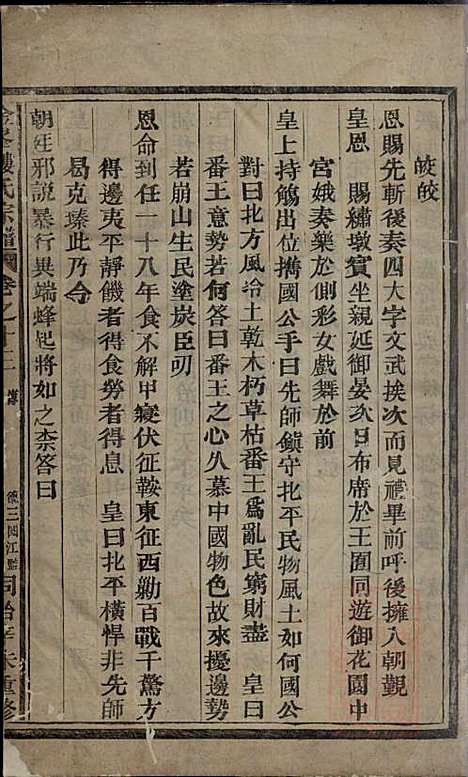 皎皎
恩賜先斬後奏四大字文武挨次而見禮畢前呼後擁入朝覲
皇恩 賜繡墩賓坐親延御宴次日布席於王囿同遊御花園中
宮娥奏樂於側彩女戲舞於前
皇上持觴出位攜國公手曰先師鎮守北平民物風土如何國公
對曰北方風冷土乾木朽草枯番王為亂民窮財盡 皇曰
番王意勢若何答曰番王之心久慕中國物色故來擾邊勢
若崩山生民塗炭臣叨
恩命到任一十八年食不解甲寢伏征鞍東征西勦百戰千驚方
得邊夷平靜饑者得食勞者得息 皇曰北平橫悍非先師
曷克臻此乃今
朝廷邪說暴行異端蜂起將如之柰答曰
樓氏宗譜 卷之十二 傳
同治辛未重修